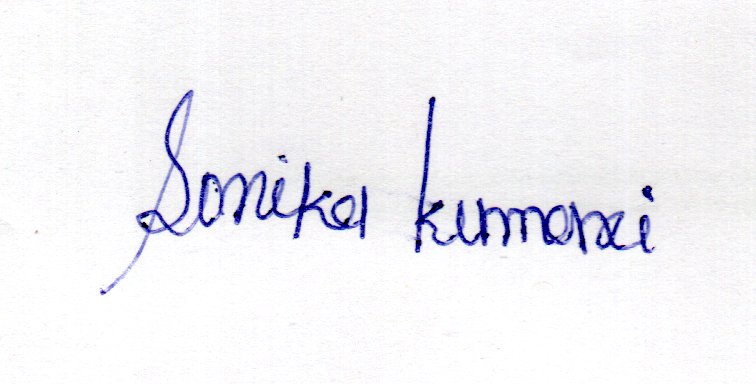 Sonika kumari